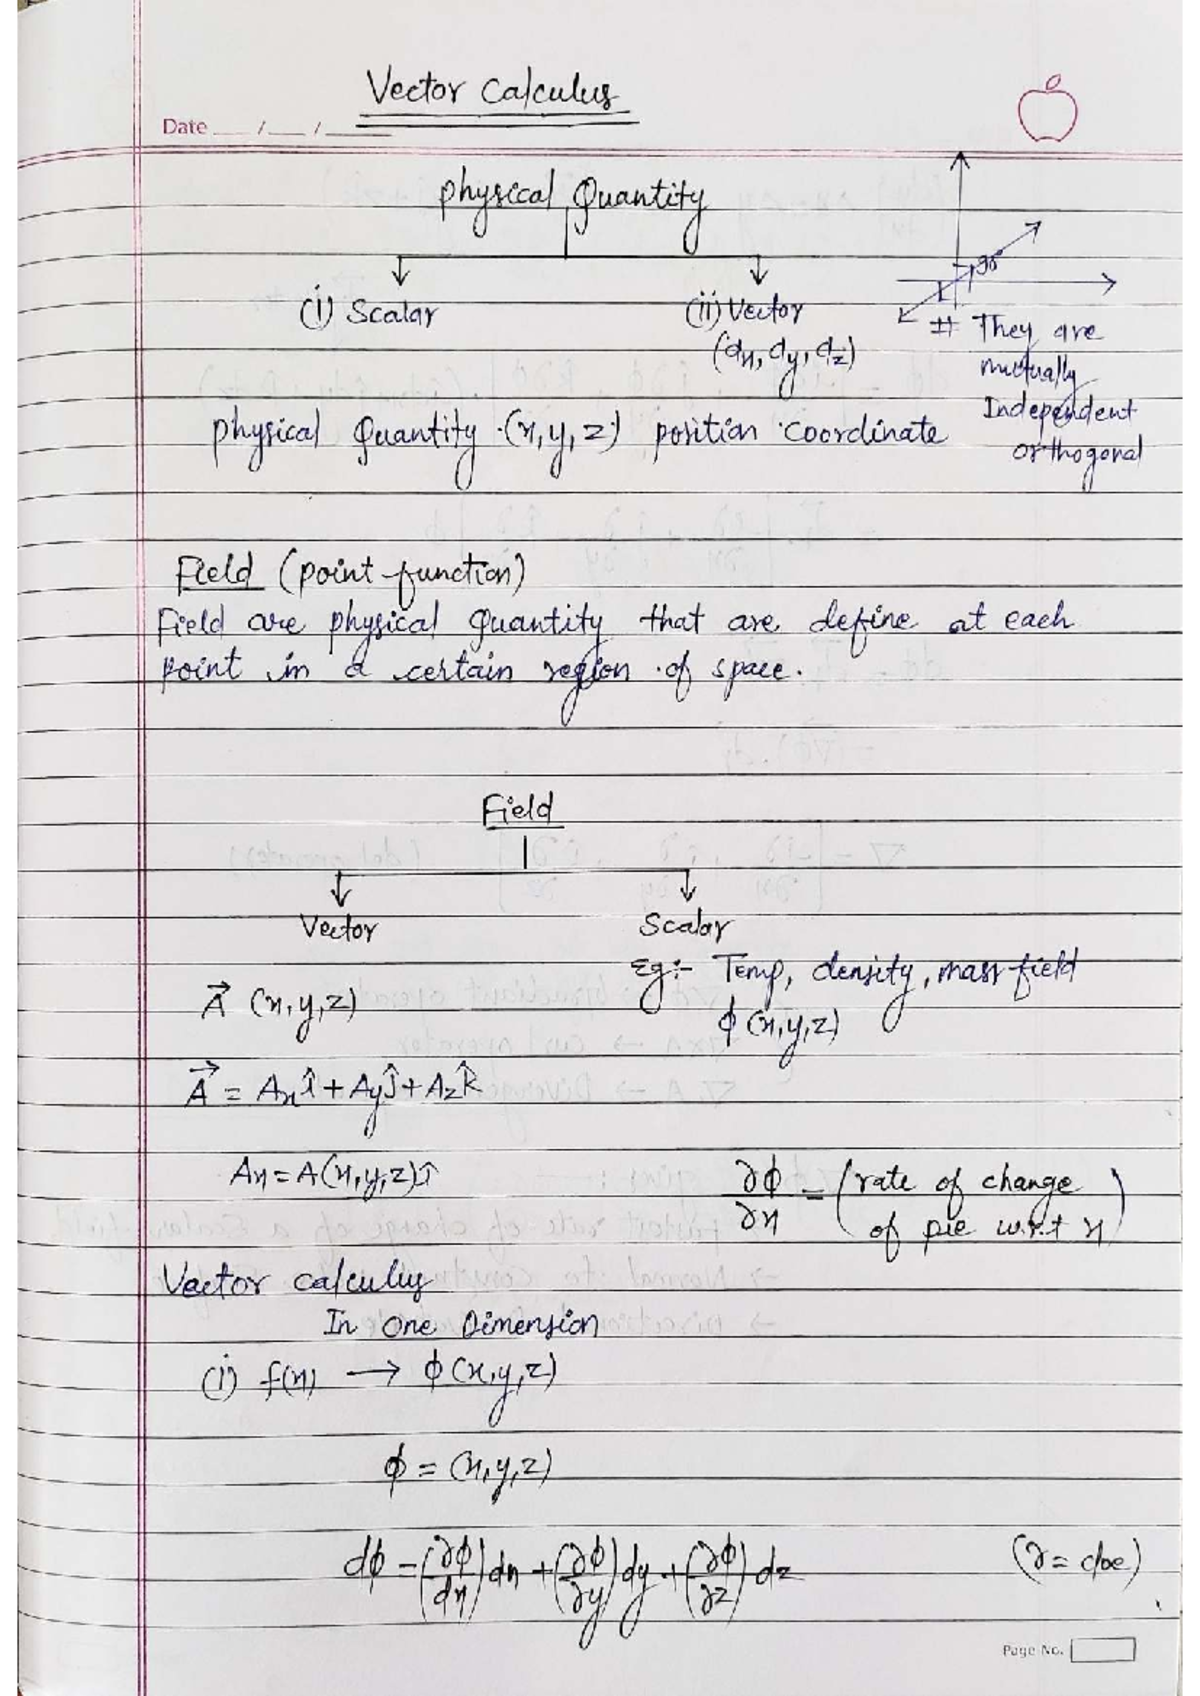 Vector Calculus
Date __/__/____
physical Quantity
(i) Scalar
(ii) Vector
(dx, dy, dz)
90°
# They are
mutually
Independent
orthogonal
physical Quantity (x, y, z) position coordinate
Field (point function)
Field are physical quantity that are define at each
point in a certain region of space.
Field
Vector
Scalar
Eg:- Temp, density, mass field
ϕ (x, y, z)
A⃗ (x, y, z)
A⃗ = Axî + Ayĵ + Azk̂
Ax = A(x, y, z)î
∂ϕ/∂x = (rate of change
of pie w.r.t x)
Vector calculus
In One Dimension
(i) f(x) → ϕ (x, y, z)
ϕ = (x, y, z)
dϕ = (∂ϕ/dx) dx + (∂ϕ/∂y) dy + (∂ϕ/∂z) dz
Page No.